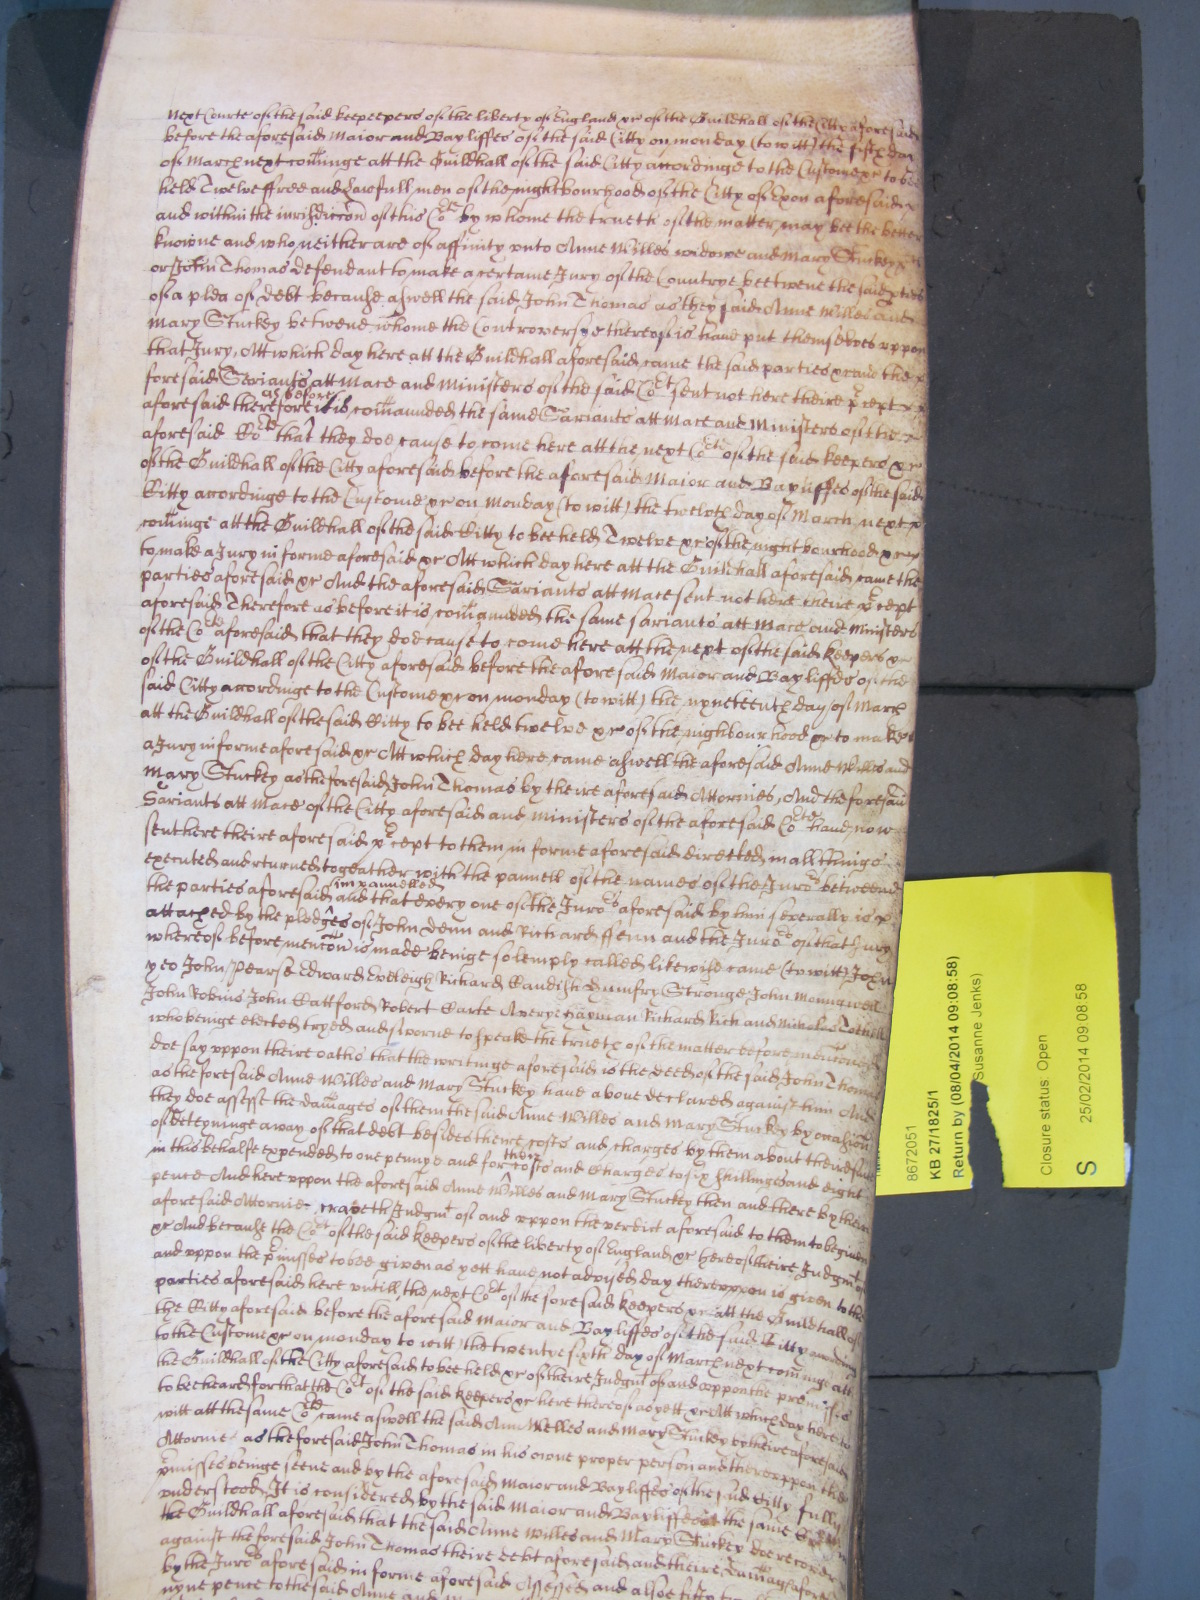 next Courte of the said keepeepers of the liberty of England xr of the Guildhall of the Citty aforesaid
before the aforesaid Maior and Bayliffes of the said Citty on monday (to witt) the fift day
of March next com̃inge att the Guildhall of the said Citty accordinge to the Custome xr to bee
held Twelve ffree and Lawfull men of the nightbourhood of the Citty of Exon aforesaid
and within the iurisdiccõn of this Cort by whome the trueth of the matter may bee the better
knowne and who neither are of affinity unto Anne Willes widowe and Mary Stuckey
or John Thomas defendant to make a certaine Jury of the Countrye beetwene the said pties
of a plea of debt because aswell the said John Thomas as they said Anne Willes and
Mary Stuckey betweene whome the Controversye thereof is have put themselves uppon
that Jury. Att which day here att the Guildhall aforesaid came the said parties xr and the
foresaid Seriants att Mace and Ministers of the said Cort sent not here theire pcept
aforesaid therefore as before it is com̃aunded the same Sariants att Mace and Ministers of the
aforesaid Cort that they doe cause to come here att the next Cort of the said keepers xr
of the Guildhall of the Citty aforesaid before the aforesaid Maior and Bayliffes of the said
Citty accordinge to the Custome xr on Monday (to witt) the twelveth day of March next
com̃inge att the Guildhall of the said Citty to bee held Twelve xr of the nightbourhood xr
to make a Jury in forme aforesaid xr Att which day here att the Guildhall aforesaid came the
parties aforesaid xr And the aforesaid Sariants att Mace sent not here theire pcept
aforesaid Therefore as before it is com̃aunded the same sariants att Mace and Ministers
of the Cort aforesaid that they doe cause to come here att the next of the said keepers xr
of the Guildhall of the Citty aforesaid before the aforesaid Maior and Bayliffes of the
said Citty accordinge to the Custome xr on monday (to witt) the nyneteenth day of March
att the Guildhall of the said Citty to bee held twelve xr of the nighbourhood xr to make
a Jury in forme aforesaid xr Att which day here came aswell the aforesaid Anne Willes and
Mary Stuckey as the foresaid John Thomas by theire aforesaid Attornies, And the foresaid
Sariants att Mace of the Citty aforesaid and ministers of the aforesaid Cort have now
sent here theire aforesaid pcept to them in forme aforesaid directed in all things
executed and returned togeather with the pannell of the names of the Juros betweene
the parties aforesaid impannelled and that every one of the Juros aforesaid by him severally is
attached by the pledges of John Denn and Richard ffenn and the Juros of that Jury
whereof before mencõn is made beinge solemply called likewise came (to witt) John
yeo John Pearse Edward Eveleigh Richard Standish Humfry Stronge John Mannwell
John Robins John Wattford Robert Warte Averye Hayman Richard Rich and Nicholas
who beinge elected tryed and sworne to speake the trueth of the matter before mencõned
doe say uppon theire oaths that the writinge aforesaid is the deed of the said John Thomas
as the foresaid Anne Willes and Mary Stuckey have above declared against him And
they doe assesse the dam̃ages of them the said Anne Willes and Mary Stuckey by occasion
of deteyninge away of that debt besides theire costs and charges by them about theire suite
in this behalfe expended to one penny and for their costs and Charges to six shillings and eight
pence And here uppon the aforesaid Anne Willes and Mary Stuckey then and there by their
aforesaid Attornie craveth Judgmt of and uppon the verdict aforesaid to them to be given
xr And because the Cort of the said keepers of the liberty of England xr hereof theire Judgmt of
and uppon the pmisses to bee given as yett have not advised day thereuppon is given to the
parties aforesaid here untill the next Cort of the foresaid keepers xr att the Guildhall of
the Citty aforesaid before the aforesaid Maior and Bayliffes of the said Citty accordinge
to the Custome xr on monday to witt the twentye sixth day of March next com̃inge att
the Guildhall of the Citty aforesaid to bee held xr of theire Judgmt of and uppon the premisses
to be heard for that the Cort of the said keepers xr here thereof as yett xr Att which day here to
witt att the same Cort came aswell the said Ann Willes and Mary Stuckey by theire aforesaid
Attornie as the foresaid John Thomas in his owne proper person and thereuppon the
pmisses beinge seene and by the aforesaid Maior and Bayliffes of the said Citty fully
understood, It is considered by the said Maior and Bayliffes att the same Cort
the Guildhall aforesaid that the said Anne Willes and Mary Stuckey doe recover
against the foresaid John Thomas theire debt aforesaid and theire Damages aforesaid
by the Juros aforesaid in forme aforesaid Assessed and alsoe fifty
nyne pence to the said Anne and
8672051
KB 27/1825/1
Return by (08/04/2014 09:08:58)
Susanne Jenks)
Closure status: Open
S
25/02/2014 09:08:58